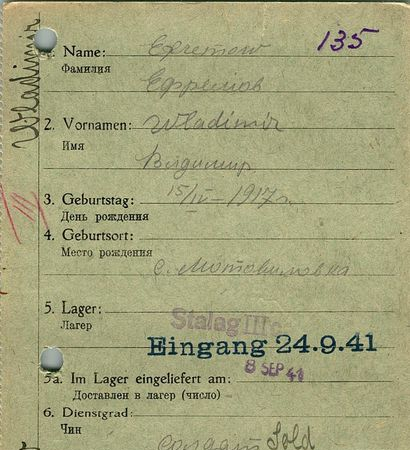 135
Wladimir
1. Name: Efremow
Фамилия
Ефремов
2. Vornamen: Wladimir
Имя
Владимир
3. Geburtstag: 15/IV-1917г.
День рождения
4. Geburtsort:
Место рождения
с. Мотовиловка
5. Lager: Stalag III
Лагер
Eingang 24.9.41
8 SEP 41
5a. Im Lager eingeliefert am:
Доставлен в лагер (число)
6. Dienstgrad:
Чин
солдат Sold